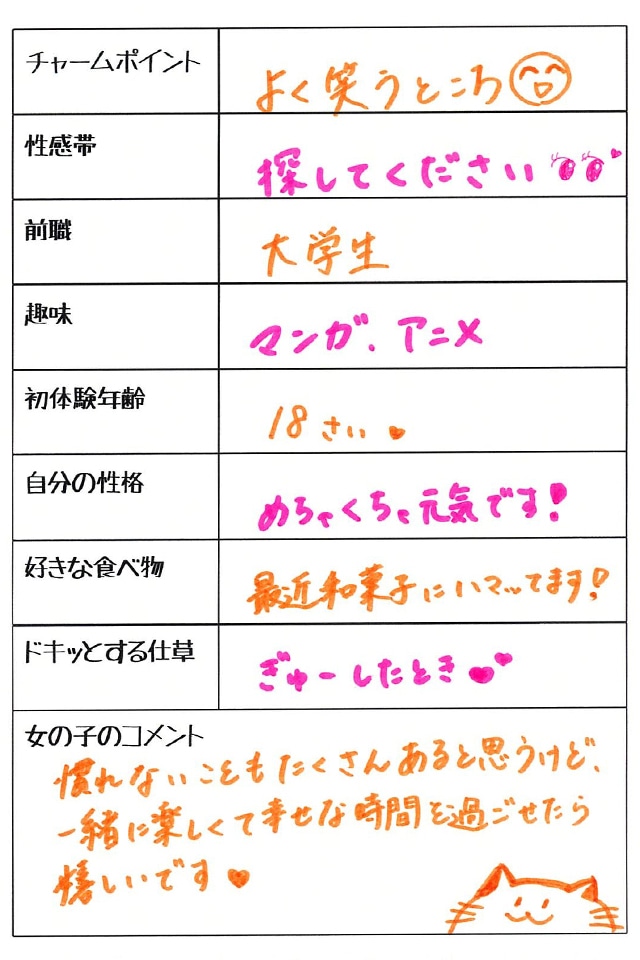 チャームポイント
よく笑うところ
性感帯
探してください
前職
大学生
趣味
マンガ、アニメ
初体験年齢
18さい
自分の性格
めちゃくちゃ元気です!
好きな食べ物
最近和菓子にハマってます!
ドキッとする仕草
ぎゅーしたとき
女の子のコメント
慣れないこともたくさんあると思うけど、
一緒に楽しくて幸せな時間を過ごせたら
嬉しいです